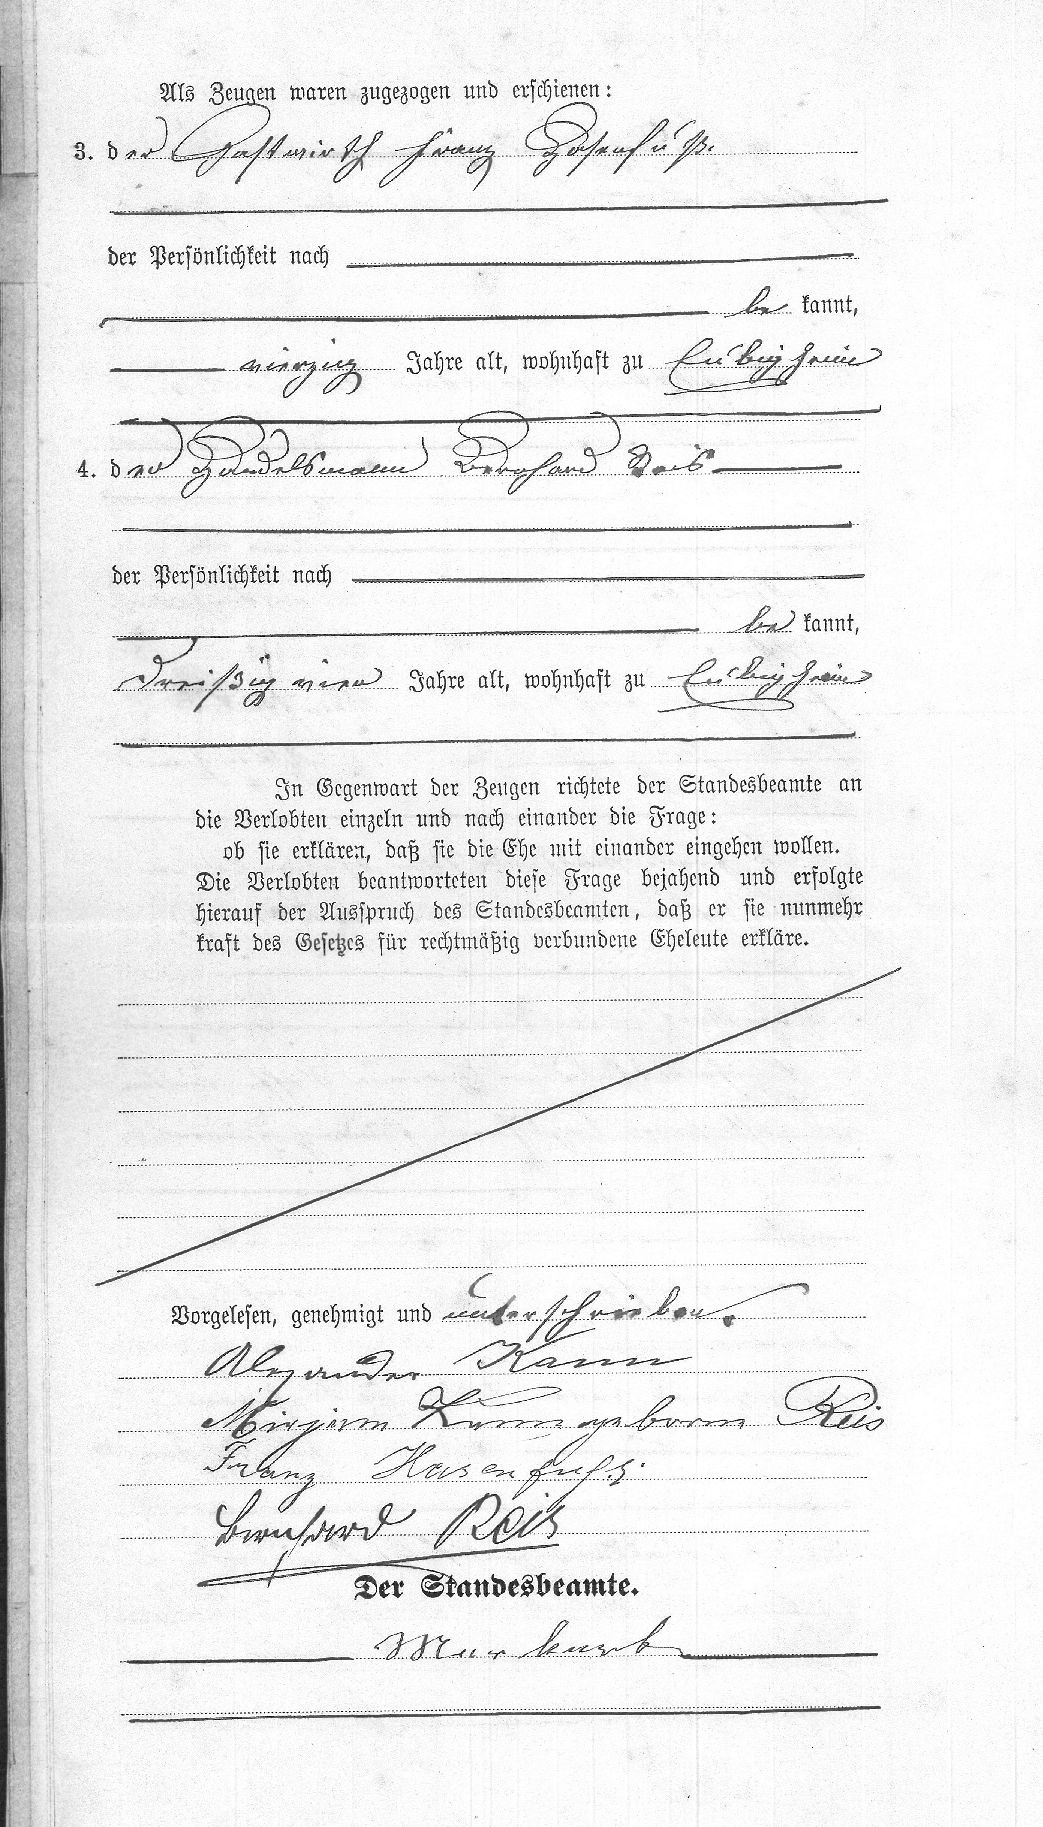 Als Zeugen waren zugezogen und erschienen:
3. der Gastwirth Franz Hasenfuß.
der Persönlichkeit nach
be kannt,
vierzig Jahre alt, wohnhaft zu Eubigheim
4. der Handelsmann Bernhard Reis
der Persönlichkeit nach
be kannt,
Dreißig vier Jahre alt, wohnhaft zu Eubigheim
In Gegenwart der Zeugen richtete der Standesbeamte an
die Verlobten einzeln und nach einander die Frage:
ob sie erklären, daß sie die Ehe mit einander eingehen wollen.
Die Verlobten beantworteten diese Frage bejahend und erfolgte
hierauf der Ausspruch des Standesbeamten, daß er sie nunmehr
kraft des Gesetzes für rechtmäßig verbundene Eheleute erkläre.
Vorgelesen, genehmigt und unterschrieben.
Alexander Kann
Mirjam Kann geborne Reis
Franz Hasenfuß.
Bernhard Reis
Der Standesbeamte.